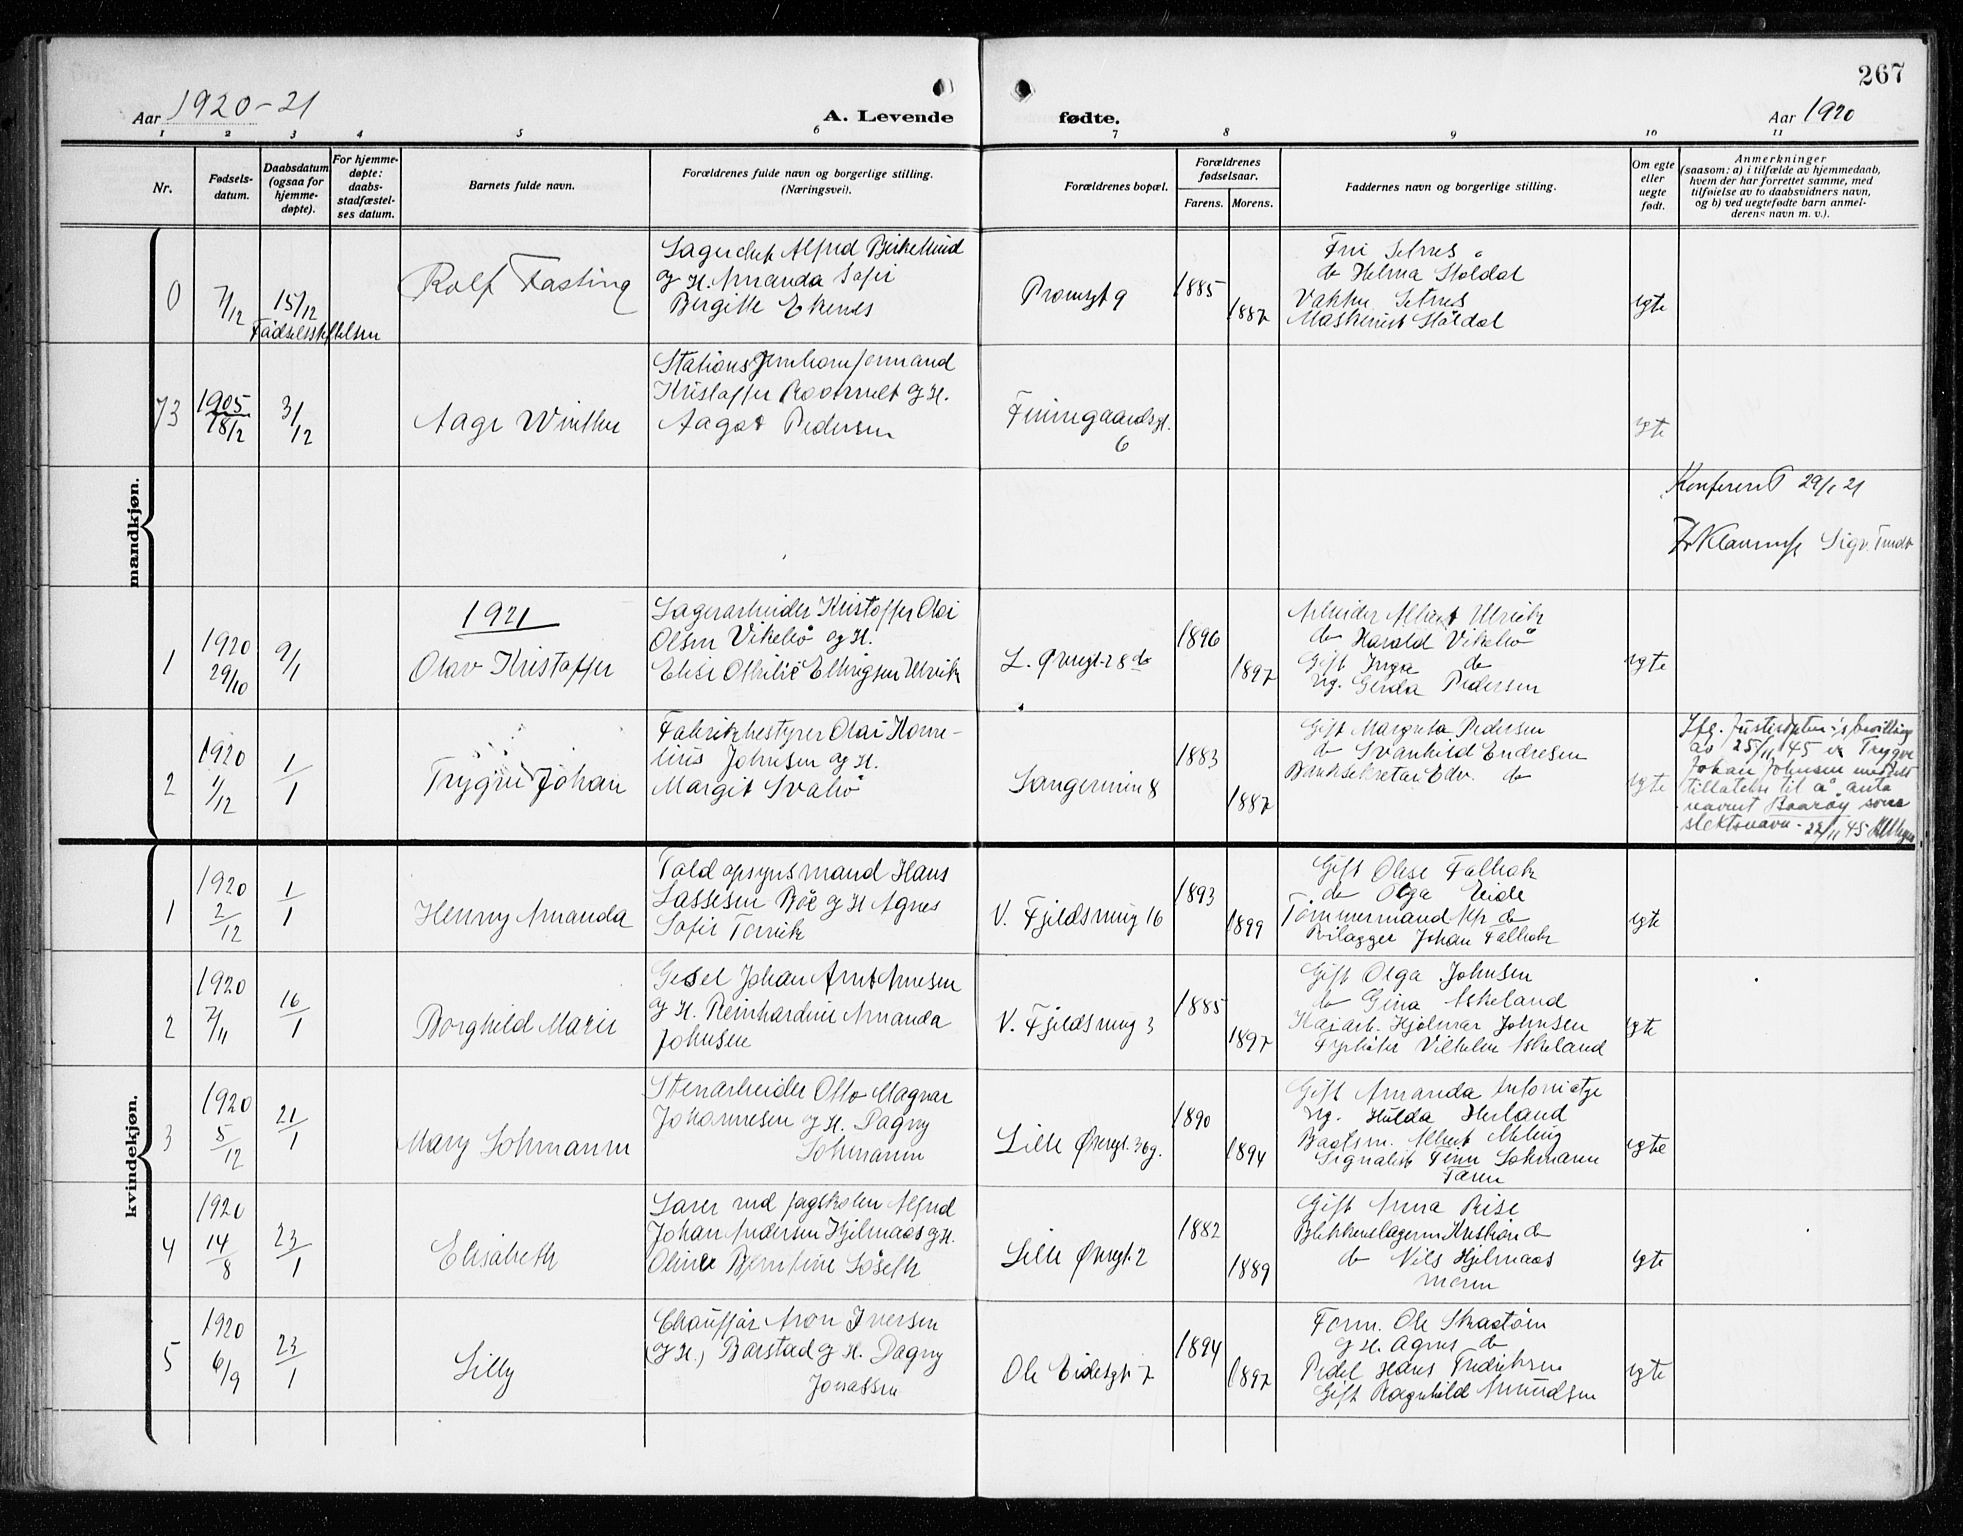 267
Aar 1920-21
A. Levende fødte.
Aar 1920
1 2 3 4 5 6 7 8 9 10 11
Nr.
Fødsels-
datum.
Daabsdatum
(ogsaa for
hjemme-
døpte).
For hjemme-
døpte:
daabs-
stadfæstel-
ses datum.
Barnets fulde navn.
Forældrenes fulde navn og borgerlige stilling.
(Næringsvei).
Forældrenes bopæl.
Forældrenes
fødselsaar.
Farens. Morens.
Faddernes navn og borgerlige stilling.
Om egte
eller
uegte
født.
Anmerkninger
(saasom: a) i tilfælde av hjemmedaab,
hvem der har forrettet samme, med
tilføielse av to daabsvidners navn,
og b) ved uegtefødte barn anmel-
derens navn m. v.).
mandkjøn.
0
7/12
15/12
Rolf Fasting
Lagerchef Alfred Birkelund
og H. Amanda Sofie
Birgitte Ekenes
1885
1887
Fru Setnes
do Helma Støldal
Setnes
Maskinist Støldal
egte
73
1905
18/12
3/12
Aage Winther
Kristoffer og H.
Aagot Pedersen
Finnegaardsgt.
6
egte
Konferert 29/1 21
1921
1
1920
29/10
9/1
Olav Kristoffer
Lagerarbeider Kristoffer Olai
Olsen Vikebø og H.
Elise Othilie Ellingsen Ulrik
L. Øvregt. 28 do
1896
1897
Arbeider Albert Ulrik
do Harald Vikebø
Gift Inga do
Ug. Gerda Pedersen
egte
2
1920
1/12
1/1
Trygve Johan
Fabrikbestyrer Olai Korne-
lius Johnsen og H.
Margit Svabø
8
1883
1887
Gift Margreta Pedersen
do Svanhild Endresen
Banksekretær Edv. do
egte
Ifg. Justisdptm.'s bevilling
av 25/11 45 er Trygve
Johan Johnsen meddelt
tillatelse til å anta
navnet Baarøy som
slektsnavn - 45
kvindekjøn.
1
1920
2/12
1/1
Henny Amanda
Toldopsynsmand Hans
Lassesen Bøe og H Agnes
Sofie
V. Fjeldsmug 16
1893
1899
Gift
do Olga Eide
Tømmermand do
Johan
egte
2
1920
7/11
16/1
Borghild Marie
Gesel Johan Arnt Arnesen
og H. Reinhardine Amanda
Johnsen
V. Fjeldsmug 3
1885
1897
Gift Olga Johnsen
do Gina Askeland
Kaiarb. Hjalmar Johnsen
Vilhelm Askeland
egte
3
1920
5/12
21/1
Mary Sohmann
Stenarbeider Otto Magnar
Johannesen og H. Dagny
Sohmann
Lille Øvregt. 36g.
1890
1894
Gift Amanda
Ug. Hulda
Baatsm. Albert Meling
Signalist Finn Sohmann
Faren
egte
4
1920
14/8
23/1
Elisabeth
Lærer ved fagskolen Alfred
Johan Andersen Hjelmaas og H.
Oline Berntine Søseth
Lille Øvregt. 2
1882
1889
Gift Anna Rise
Blikkenslagerm Kristian do
do Nils Hjelmaas
moren
egte
5
1920
6/9
23/1
Lilly
Chauffør Aron Iversen
(og H.) Barstad og H. Dagny
Jonassen
Ole Eidesgt. 7
1894
1897
Form. Ole
og H. Agnes do
Pedel Hans Fredriksen
Gift Ragnhild Amundsen
egte